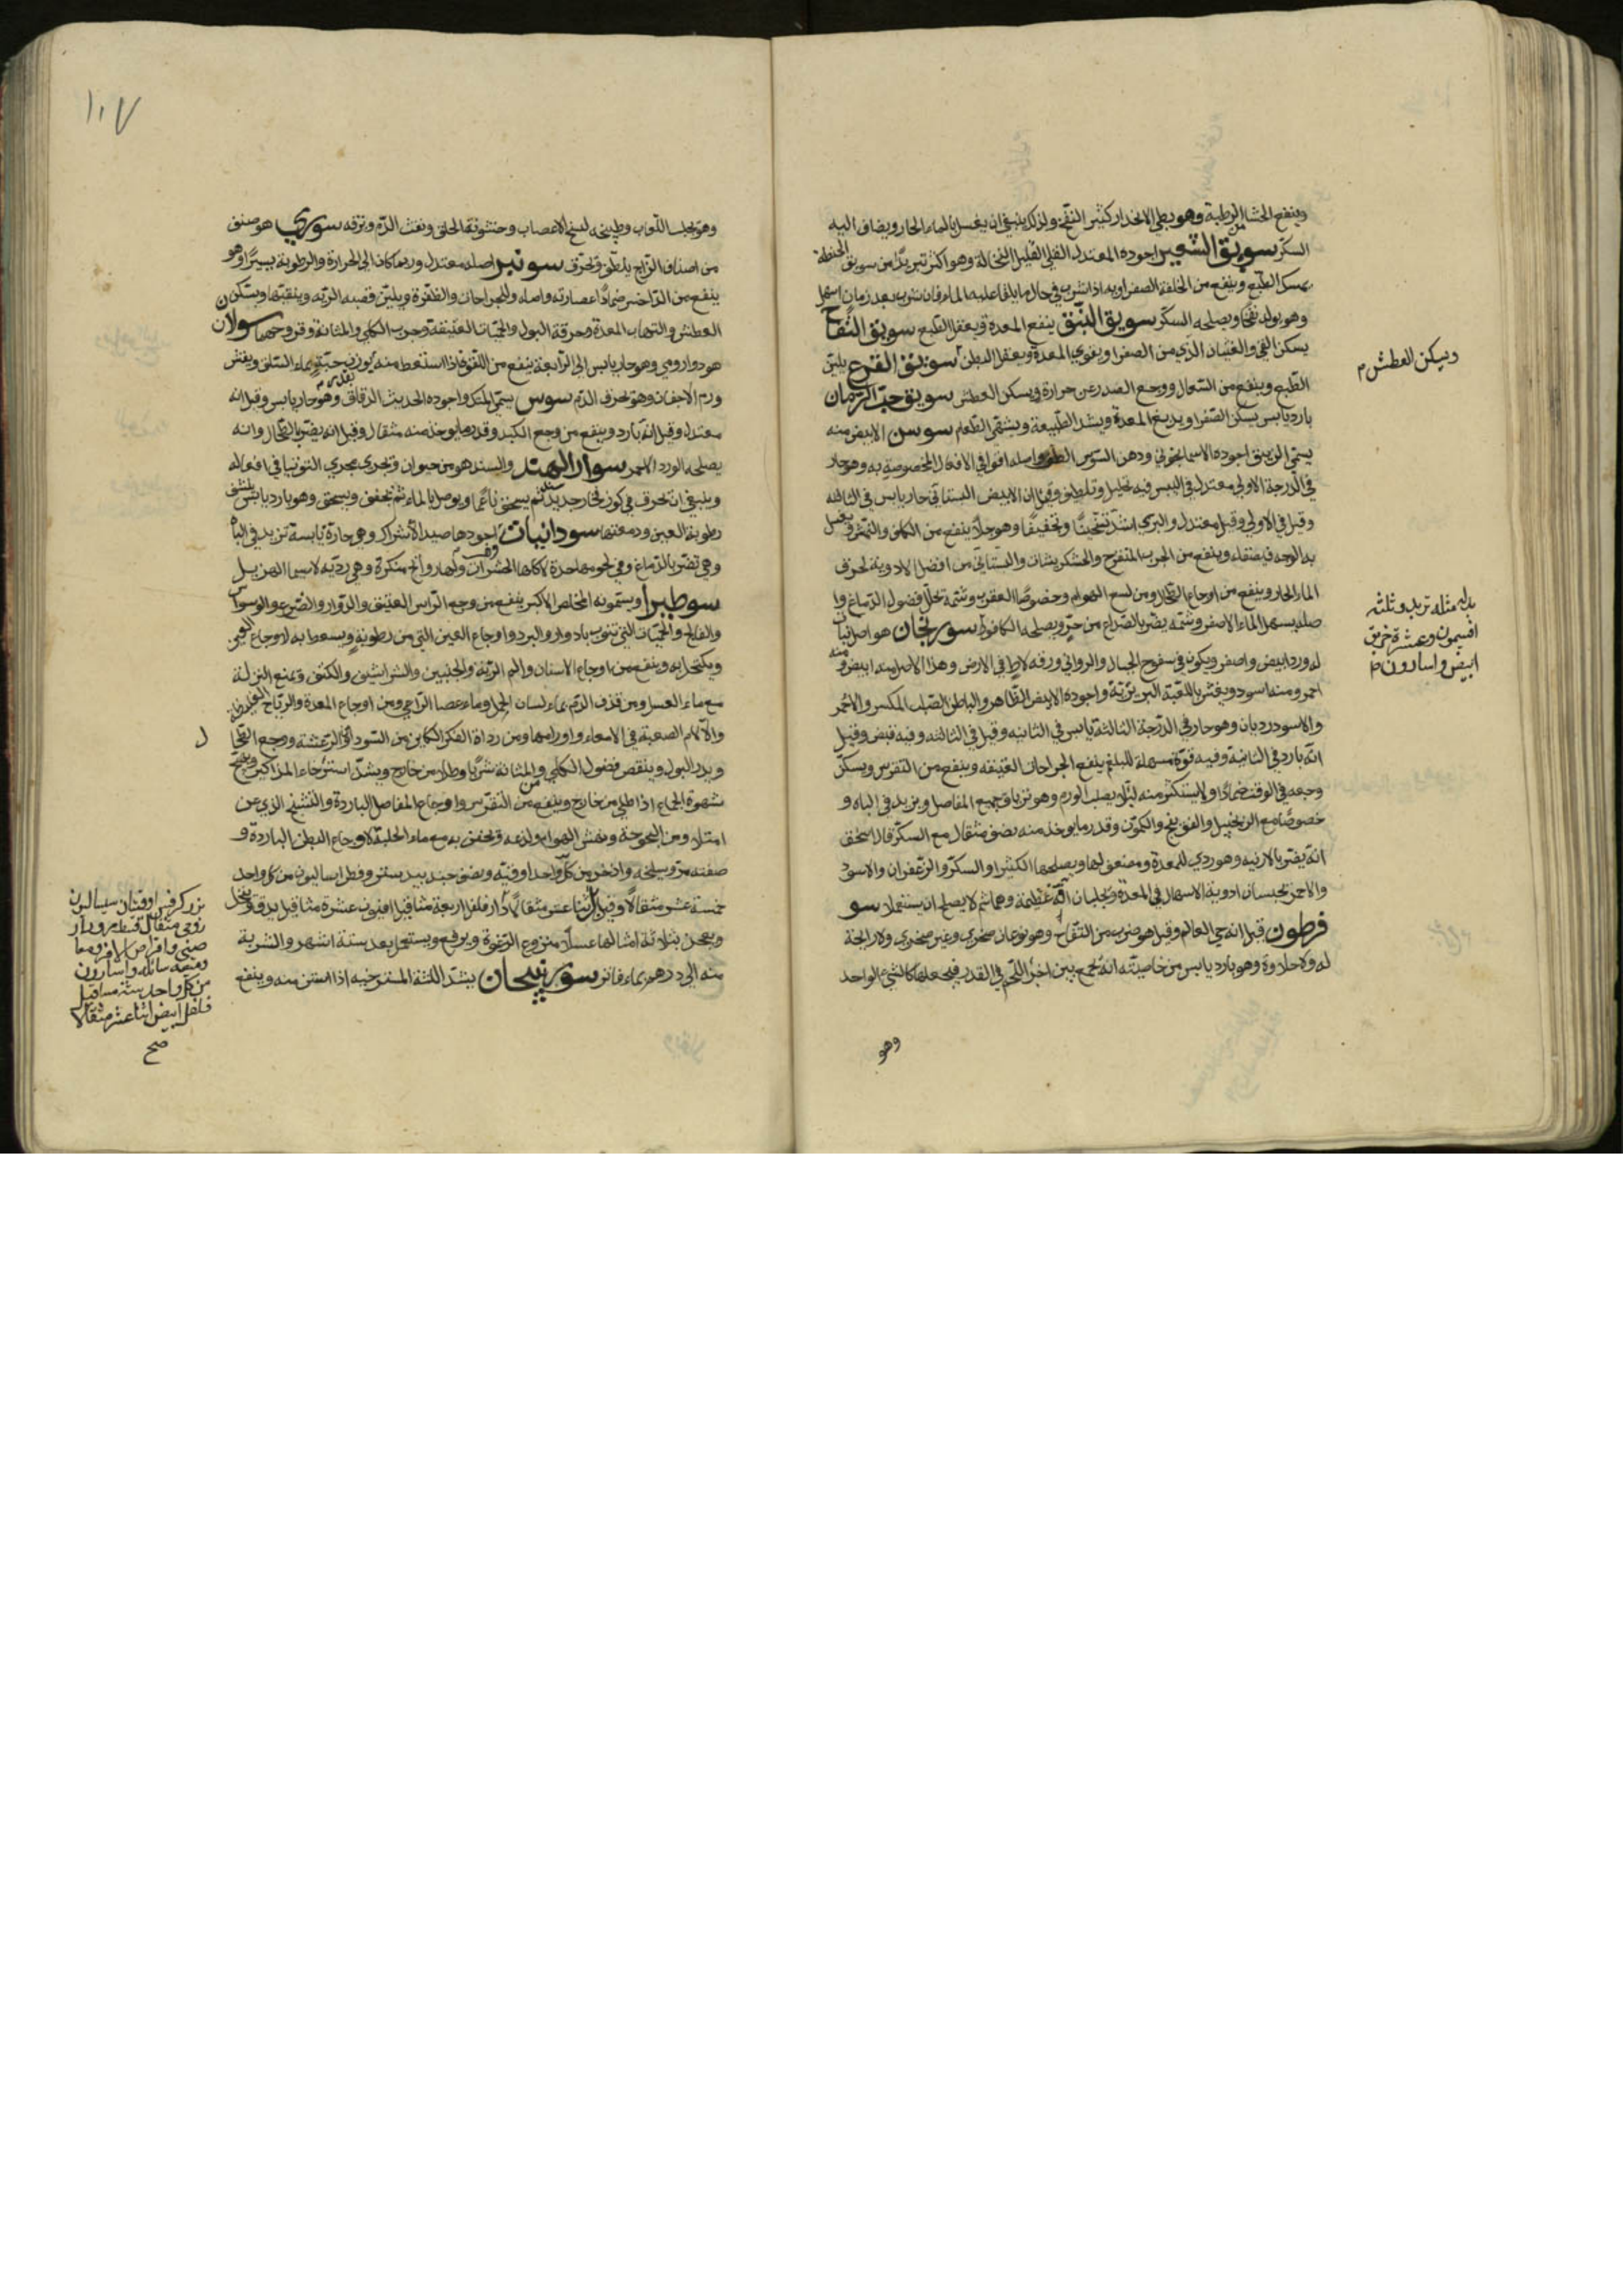 وينفع الحشا الرطبة وهو بطي الانحدار كثير النفخ ولذلك ينبغي ان يغسل بالماء الحار ويضاف اليه
السكر سويق الشعير اجوده المعتدل القلي القليل النخالة وهو اكثر تبريدًا من سويق الحنطة
يمسك الطبع وينفع من الخلفة الصفراوية اذا شرب في حال ما يلقا عليه الماء فان شرب بعد زمان اسهل
وهو يولد نفخًا ويصلحه السكر سويق النبق ينفع المعدة ويعقل الطبع سويق التفاح
يسكن القي والغثيان الذي من الصفرا ويقوي المعدة ويعقل البطن سويق القرع يلين
ويسكن العطش م
الطبع وينفع من السعال ووجع الصدر عن حرارة ويسكن العطش سويق حب الرمان
بارد يابس يسكن الصفرا ويدبغ المعدة ويشد الطبيعة ويشهي الطعام سوسن الابيض منه
يسمى الزنبق اجوده الاسمانجوني ودهن السوسن الطف واصله اقوا في الافعال المخصوصة به وهو حار
في الدرجة الاولى معتدل في اليبس فيه تحليل وتلطيف وقيل ان الابيض البستاني حار يابس في الثانيه
وقيل في الاولي وقيل معتدل والبري اشد تسخينًا وتجفيفًا وهو جلاء ينفع من الكلف والنمش ويغسل
به الوجه فيصقله وينفع من الجرب المتقرح والخشكريشات والبستاني من افضل الادوية لحرق
الماء الحار وينفع من اوجاع الطحال ومن لسع الهوام وخصوصًا العقرب وشمه يحلل فضول الدماغ وا
صله يسهل الماء الاصفر وشمه يضر بالصداع من حر ويصلحه الكافور سورنجان هو اصل نبات
بدله مثله تربد وثلثه
افتيمون وعشره خربق
ابيض واسارون م
له ورد ابيض واصفر ويكون في سفوح الجبال والروابي ورقه لاط في الارض وهذا الاصل منه ابيض ومنه
احمر ومنه اسود ويغش باللعبة البربرية واجوده الابيض الظاهر والباطن الصلب المكسر والاحمر
والاسود رديان وهو حار في الدرجة الثالثة يابس في الثانيه وقيل في الثالثه وفيه قبض وقيل
انه بارد في الثانية وفيه قوة مسهلة للبلغم ينفع الجراحات العتيقه وينفع من النقرس ويسكن
وجعه في الوقت ضمادًا ولا يستكثر منه لئلا يصلب الورم وهو ترياق جميع المفاصل ويزيد في الباه و
خصوصًا مع الزنجبيل والفوتنج والكمون وقدر ما يوخذ منه نصف مثقال مع السكر قال اسحق
انه يضر بالارنبه وهو ردي للمعدة ومضعف لها ويصلحها الكثيرا والسكر والزعفران والاسود
والاحمر يحبسان ادوية الاسهال في المعدة ويجلبان آفة عظيمة وهما سم لا يصلح ان يستعمل سو
فرطون قيل انه حي العالم وقيل هو ضرب من التفاح وهو نوعان صخري وغير صخري ولا رايحة
له ولا حلاوة وهو بارد يابس من خاصيته انه يجمع بين اجزا اللحم في القدر فيجعلها كالشي الواحد
وهو
١٠٧
وهو يجلب اللعاب وطبيخه لفسخ الاعصاب وخشونة الحلق ونفث الدم ونزفه سوري هو صنف
من اصناف الزاج يلطف ويحرق سونبر اصله معتدل وربما كان الى الحرارة والرطوبة يسيرًا وهو
ينفع من الداحس ضمادًا عصارته واصله وللجراحات والظفرة ويلين قصبه الرئه وينقيها ويسكن
العطش والتهاب المعدة وحرقة البول والحميات العتيقة وجرب الكلي والمثانة وقروحها سولان
هو دوا رومي وهو حار يابس الى الرابعة ينفع من اللقوة اذا استعط منه بوزن حبة بماء السلق ويفش
ورم الاجفان وهو يحرق الدم سوس يسمى المتك واجوده الحديث الرقاق وهو حار يابس وقيل انه
معتدل وقيل انه بارد وينفع من وجع الكبد وقدر ما يوخذ منه مثقال وقيل انه يضر بالطحال وانه
يصلحه الورد الاحمر سوار الهند والسند هو من حيوان ويجري مجري التوتيا في افعاله
وينبغي ان يحرق في كوز فخار جديد ثم يسحق ناعمًا ويوصل بالماء ثم يجفف ويسحق وهو بارد يابس ينشف
رطوبة العين ودمعتها سودانيات اجودها صيد الاشراك وهي حارة يابسة تزيد في الباه
وهي تضر بالدماغ وفي لحومها حدة لاكلها الحشرات ولها روائح منكرة وهي رديه لا سيما الهزيل
سوطيرا ويسمونه المخلص الاكبر ينفع من وجع الراس العتيق والدوار والصرع والوسواس
والفالج والحميات التي تنوب بادوار والبرد واوجاع العين التي من رطوبة ويسعط به لاوجاع العين
ويكتحل به وينفع من اوجاع الاسنان والم الرئة والجنبين والشراسيف والكتف ويمنع النزلة
مع ماء العسل ومن قذف الدم بماء لسان الحمل وماء عصا الراعي ومن اوجاع المعدة والرياح الغليظة
والآلام الصعبة في الامعاء واورامها ومن رداة الفكر الكاين من السودا والرعشة ووجع الطحا
ل
ويدر البول وينقص فضول الكلي والمثانة شربًا وطلاء من خارج ويشد استرخاء المذاكير ويهيج
شهوة الجماع اذا طلي من خارج وينفع من النقرس واوجاع المفاصل الباردة والتشنج الذي عن
امتلاء ومن البحوحة ونهش الهوام ولدغه ويحقن به مع ماء الحلبة لاوجاع البطن الباردة و
صفته مر وسليخه واذخر من كل واحد اوقيه ونصف جندبيدستر وفطراساليون من كل واحد
خمسة عشر مثقالًا وقيل اثنا عشر مثقالًا دار فلفل اربعة مثاقيل افيون عشرة مثاقيل يدق وينخل
ويعجن بثلاثة امثالها عسلًا منزوع الرغوة ويرفع ويستعمل بعد ستة اشهر والشربة
منه الى درهم بماء فاتر سورنيجان يشد اللثة المسترخيه اذا استن منه وينفع
بزر كرفس اوقيتان سيساليون
رومي مثقال قسط مر ودار
صيني واقراص الافروما
وميعه سائله واسارون
من كل واحد ستة مثاقيل
فلفل ابيض اثنا عشر مثقالا
صح